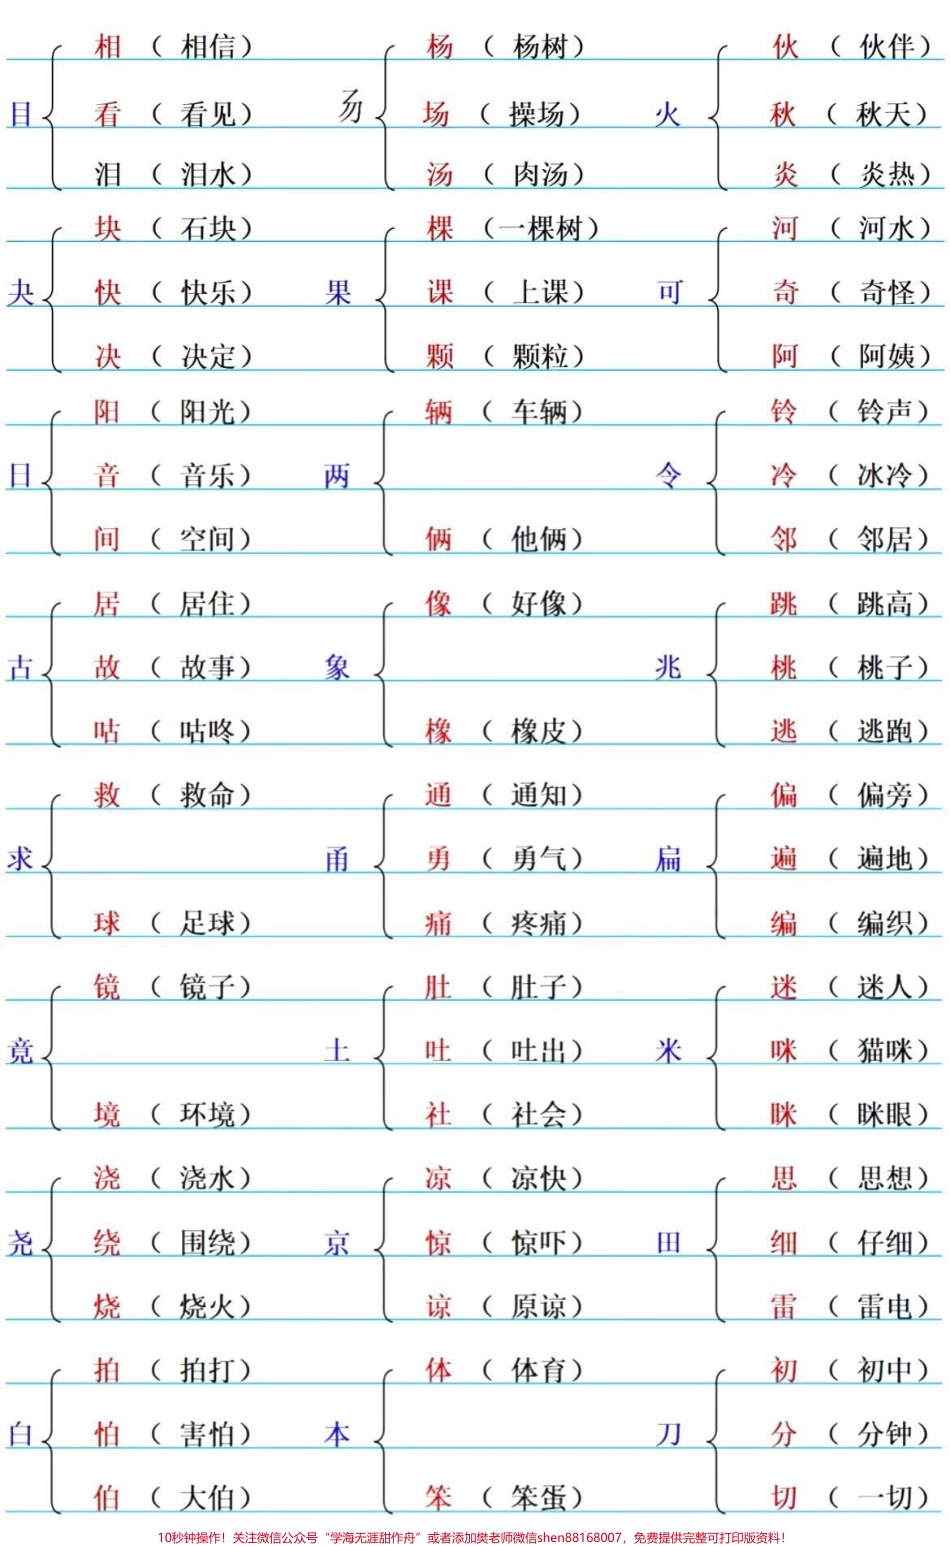 相 （ 相信） 杨 （ 杨树） 伙 （ 伙伴）
目 看 （ 看见） 𠃓 场 （ 操场） 火 秋 （ 秋天）
泪 （ 泪水） 汤 （ 肉汤） 炎 （ 炎热）
块 （ 石块） 棵 （一棵树） 河 （ 河水）
夬 快 （ 快乐） 果 课 （ 上课） 可 奇 （ 奇怪）
决 （ 决定） 颗 （ 颗粒） 阿 （ 阿姨）
阳 （ 阳光） 辆 （ 车辆） 铃 （ 铃声）
日 音 （ 音乐） 两 令 冷 （ 冰冷）
间 （ 空间） 俩 （ 他俩） 邻 （ 邻居）
居 （ 居住） 像 （ 好像） 跳 （ 跳高）
古 故 （ 故事） 象 兆 桃 （ 桃子）
咕 （ 咕咚） 橡 （ 橡皮） 逃 （ 逃跑）
救 （ 救命） 通 （ 通知） 偏 （ 偏旁）
求 甬 勇 （ 勇气） 扁 遍 （ 遍地）
球 （ 足球） 痛 （ 疼痛） 编 （ 编织）
镜 （ 镜子） 肚 （ 肚子） 迷 （ 迷人）
竟 土 吐 （ 吐出） 米 咪 （ 猫咪）
境 （ 环境） 社 （ 社会） 眯 （ 眯眼）
浇 （ 浇水） 凉 （ 凉快） 思 （ 思想）
尧 绕 （ 围绕） 京 惊 （ 惊吓） 田 细 （ 仔细）
烧 （ 烧火） 谅 （ 原谅） 雷 （ 雷电）
拍 （ 拍打） 体 （ 体育） 初 （ 初中）
白 怕 （ 害怕） 本 刀 分 （ 分钟）
伯 （ 大伯） 笨 （ 笨蛋） 切 （ 一切）
10秒钟操作！关注微信公众号“学海无涯甜作舟”或者添加樊老师微信shen88168007，免费提供完整可打印版资料！